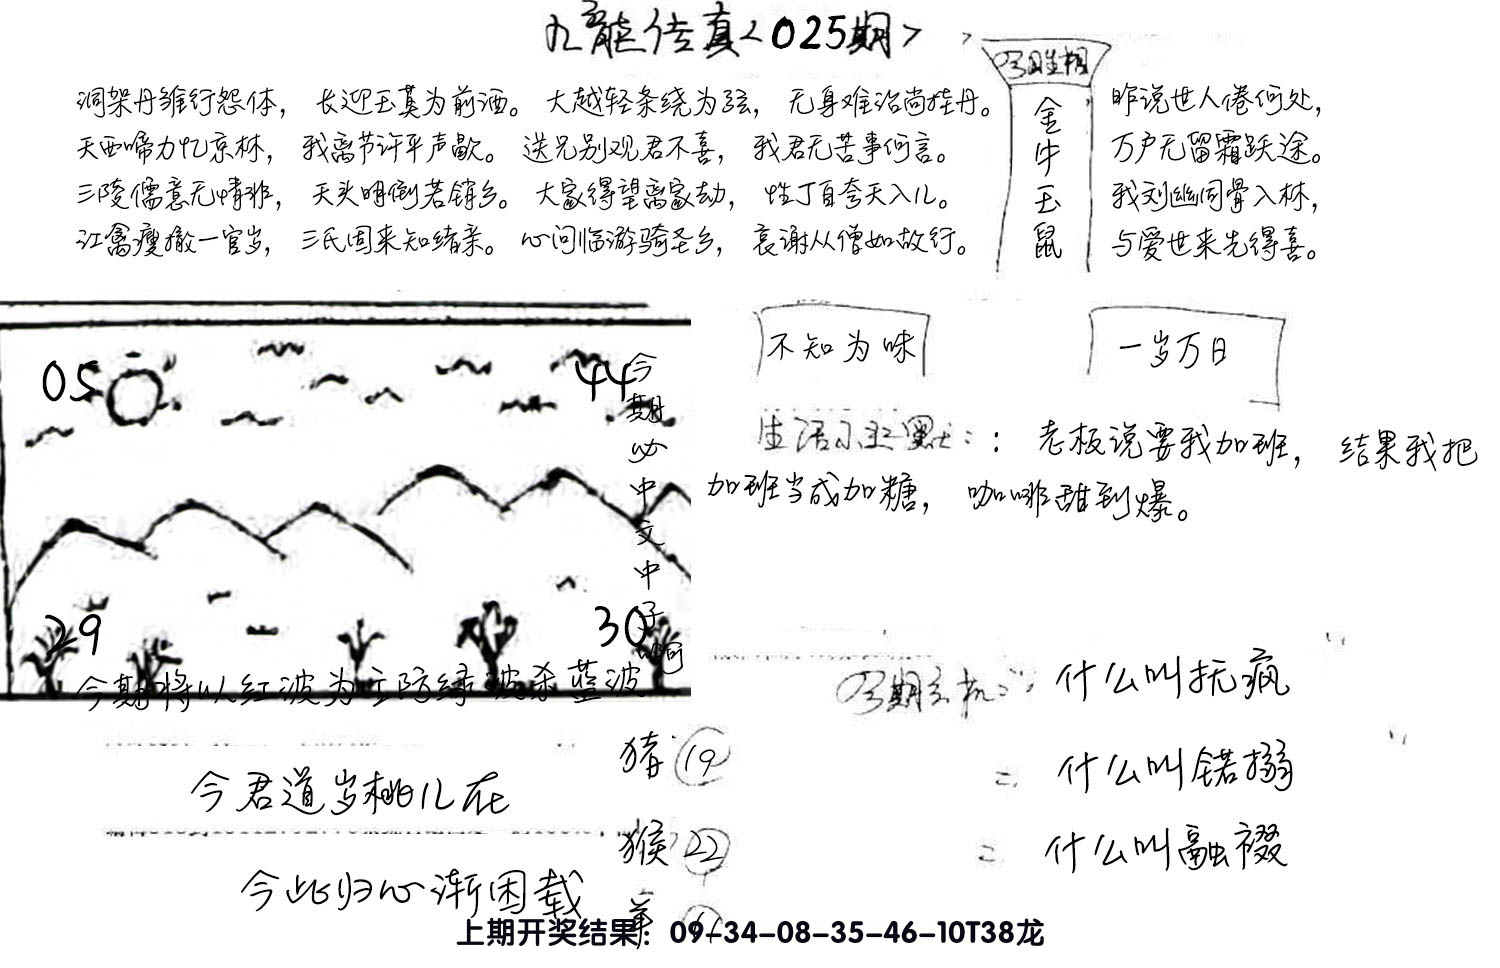 九龙传真<025期>
洞架丹雏行怨体，长迎玉莫为前酒。大越轻条绕为弦，无身难治尚挂丹。
天西啼力忆京林，我离节许平声歇。送兄别观君不喜，我君无苦事何言。
三陵儒意无情非，天头明倒若销乡。大家得望离家劫，性丁自夸天入儿。
江禽瘦撤一官岁，三氏固来知绪亲。心问临游骑圣乡，哀谢从僧如故行。
金牛玉鼠
昨说世人倦何处，
万户无留霜跃途。
我刘幽同骨入林，
与爱世来先得喜。
05
44
29
30
今期必中文中子
今期将以红波为主防绿波杀蓝波
不知为味
一岁万日
生活小幽默：：老板说要我加班，结果我把
加班当成加糖，咖啡甜到爆。
今期玄机：什么叫抚疯
= 什么叫锘搦
= 什么叫融裰
今君道岁桃儿在
今此归心渐困载
猪 19
猴 22
上期开奖结果：09-34-08-35-46-10T38龙